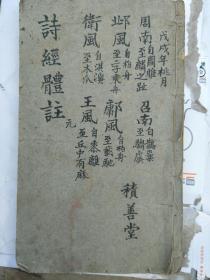 戊戌年桃月
周南 自關雎至麟之趾 召南 自鵲巢至騶虞
邶風 自柏舟至二子乘舟 鄘風 自柏舟至載馳
衛風 自淇澳至木瓜 王風 自黍離至丘中有麻
積善堂
詩經體註
元